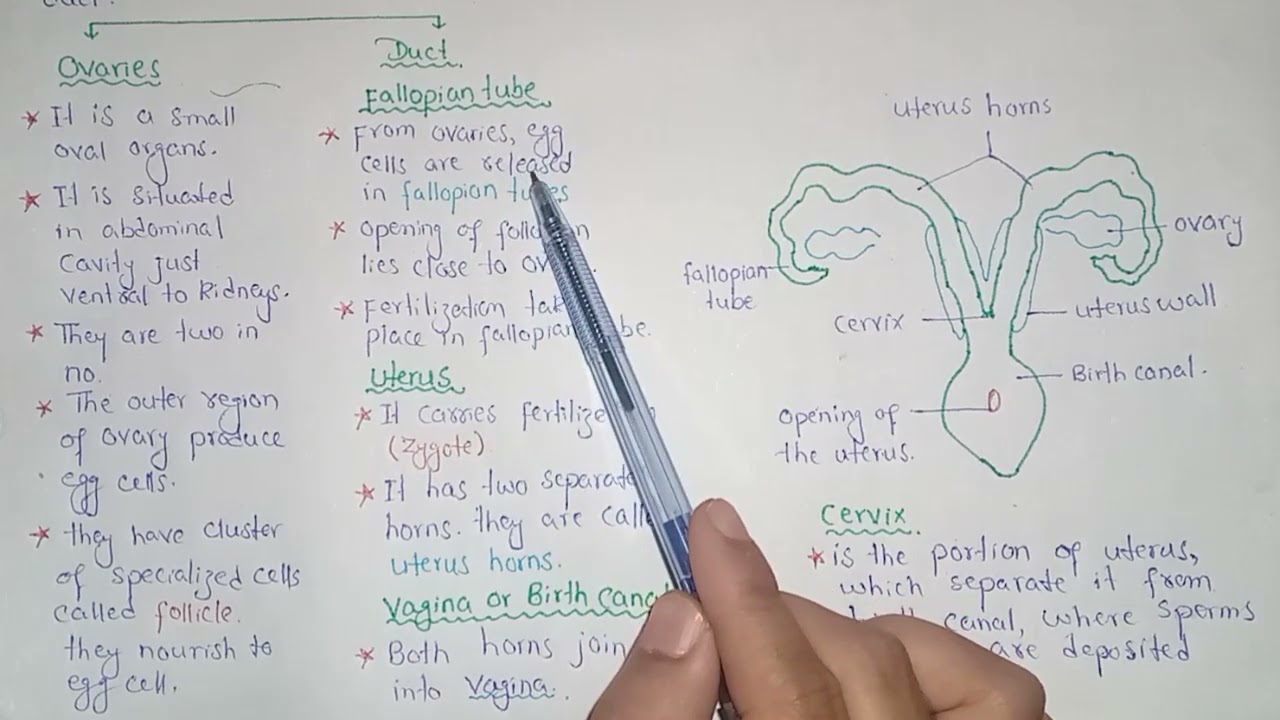 Ovaries
* It is a small
oval organs.
* It is situated
in abdominal
Cavity just
ventral to kidneys.
* They are two in
no.
* The outer region
of ovary produce
egg cells.
* they have cluster
of specialized cells
called follicle.
they nourish to
egg cell.
Duct.
Fallopian tube
* From ovaries, egg
cells are released
in fallopian
* opening of
lies close to
* Fertilization
place in
Uterus
* It carries
(Zygote)
* It has two separate
horns. they are
uterus horns.
Vagina or Birth
* Both horns join
into Vagina.
uterus horns
ovary
fallopian
tube
cervix
uterus wall
Birth canal.
opening of
the uterus.
Cervix.
* is the portion of uterus,
which separate it from
canal, where sperms
are deposited